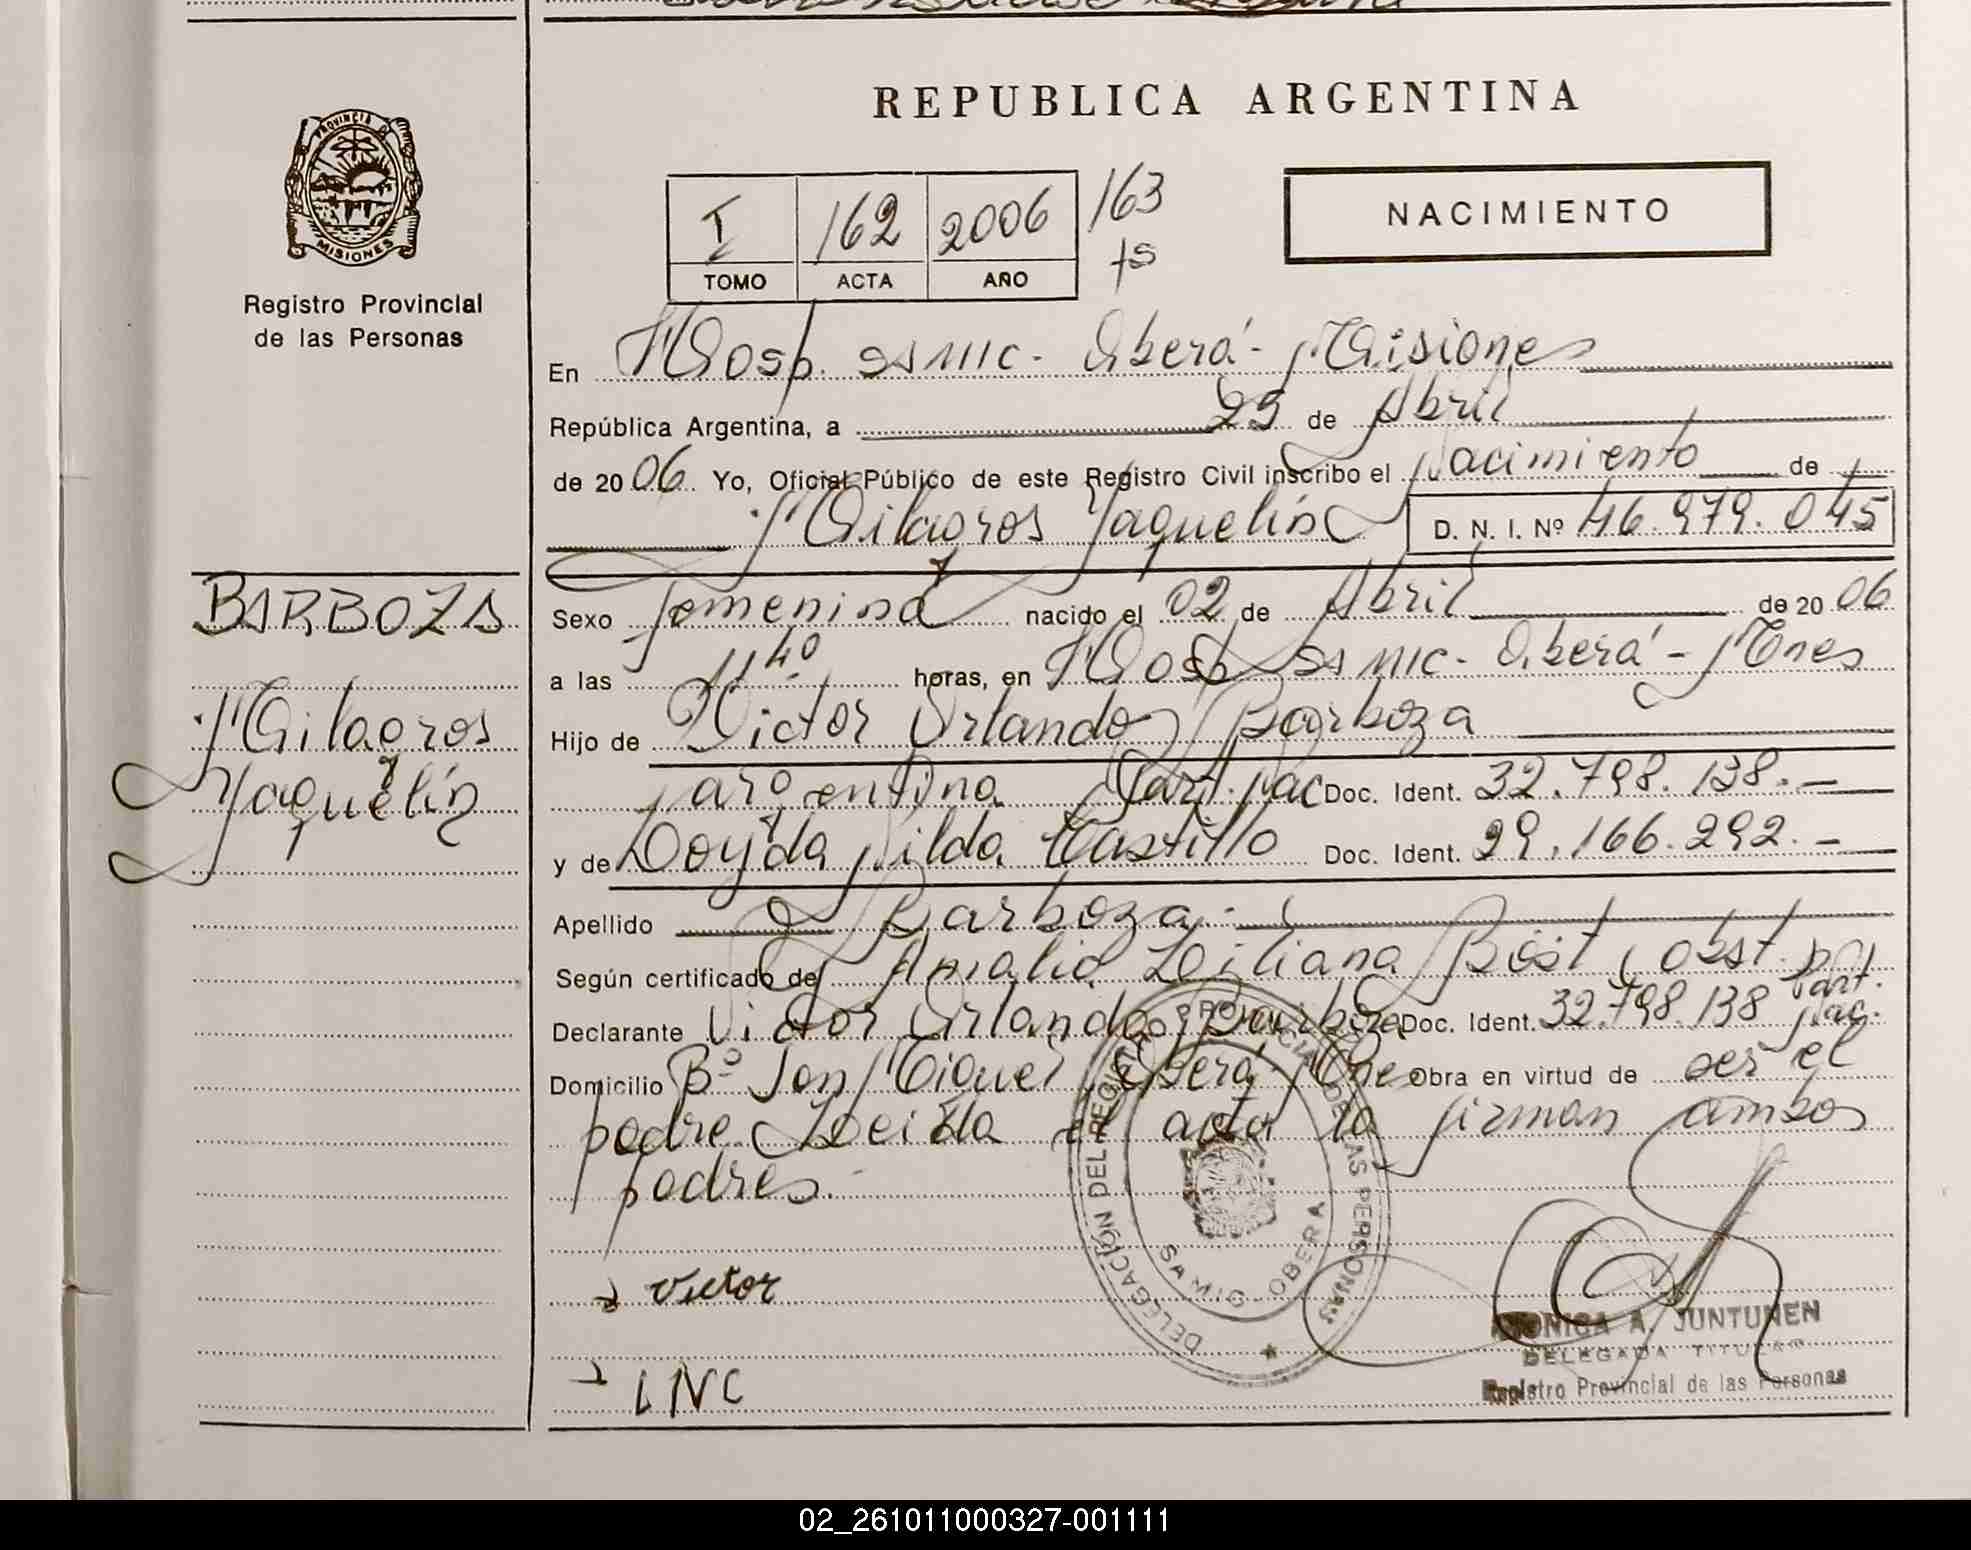 REPUBLICA ARGENTINA
PROVINCIA D MISIONES
Registro Provincial
de las Personas
I 162 2006 163
TOMO ACTA AÑO fs
NACIMIENTO
En Hosp. SAMIC - Oberá - Misiones
República Argentina, a 25 de Abril
de 20 06 Yo, Oficial Público de este Registro Civil inscribo el Nacimiento de
Milagros Yaquelín D. N. I. Nº 46.979.045
BARBOZA
Milagros
Yaquelín
Sexo femenina nacido el 02 de Abril de 20 06
a las 11 40 horas, en Hosp SAMIC - Oberá - Mnes
Hijo de Victor Orlando Barboza
argentina Part. nac Doc. Ident. 32.798.138.-
y de Nilda Castillo Doc. Ident. 29.166.292.-
Apellido Barboza
Según certificado de Amalia Liliana Böst, obst.
Declarante Victor Orlando Barboza Doc. Ident. 32.798.138 Part. nac.
Domicilio Bº San Miguel Oberá Mnes Obra en virtud de ser el
padre Leida el acta la firman ambos
padres.
Victor
LNC
DELEGACIÓN DEL REGISTRO PROVINCIAL DE LAS PERSONAS
SAMIC - OBERA
MONICA A. JUNTUNEN
DELEGADA TITULAR
Registro Provincial de las Personas
02_261011000327-001111